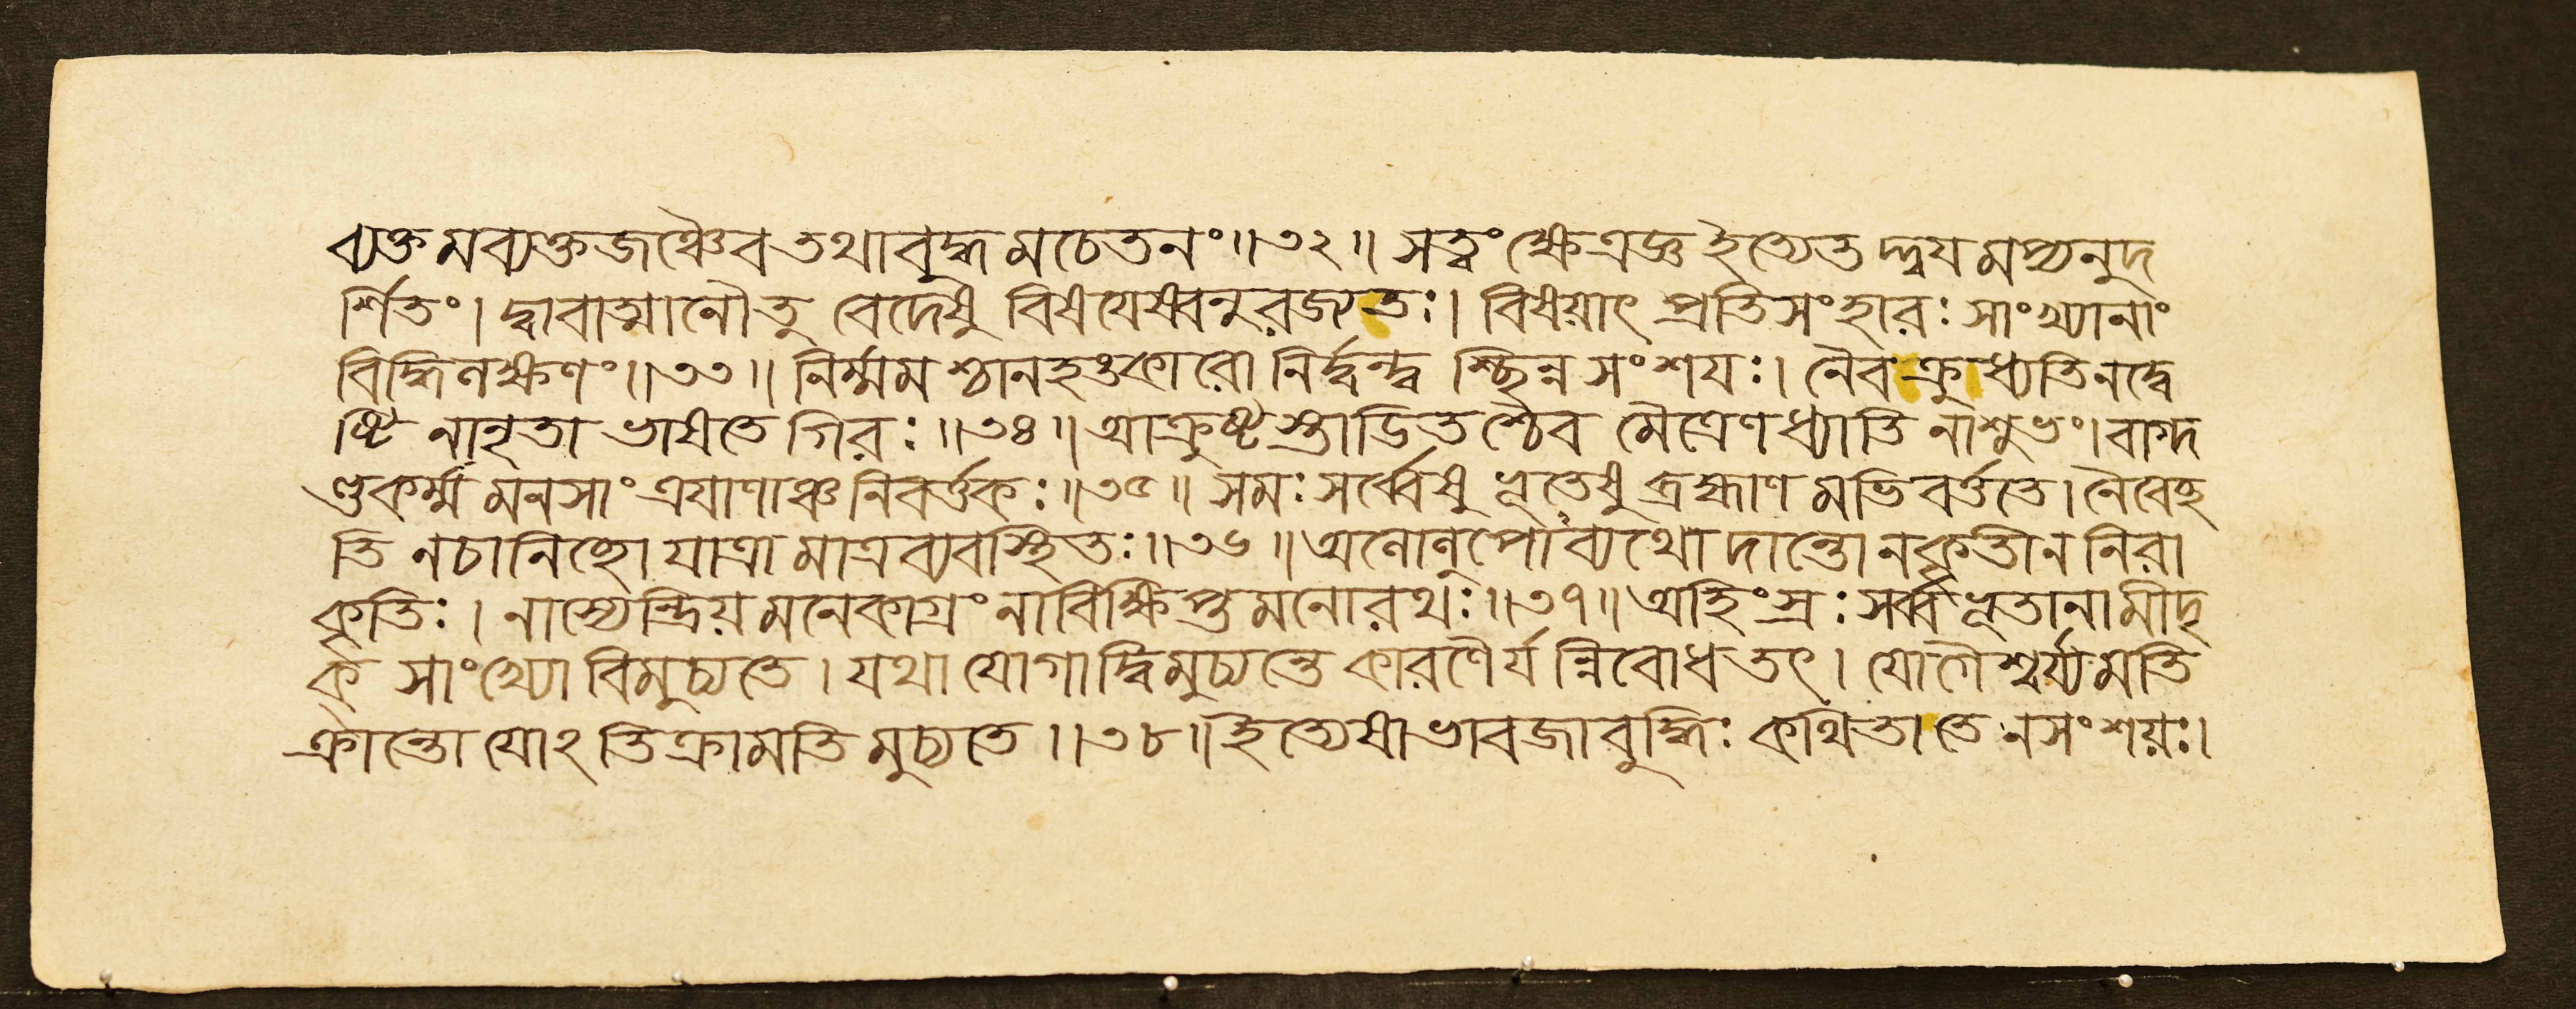 ব্যক্তমব্যক্তজঞ্চৈব তথা বুদ্ধমচেতনং॥৩২॥ সত্ত্বং ক্ষেত্রজ্ঞ ইত্যেত দ্দ্বয়মপ্যনুদ
র্শিতং। দ্বাবাত্মানৌতু বেদেষু বিষয়েষ্বনুরজ্যতঃ। বিষয়াৎ প্রতিসংহারঃ সাংখ্যানাং
বিদ্ধিলক্ষণং॥৩৩॥ নির্ম্মম শ্চানহঙ্কারো নির্দ্বন্দ্ব শ্ছিন্ন সংশয়ঃ। নৈব ক্রুধ্যতি নদ্বে
ষ্টি নানৃতা ভাষতে গিরঃ॥৩৪॥ আক্রুষ্টস্তাডিতশ্চৈব মৈত্রেণ ধ্যাতি নাশুভং। বাগ্দ
ণ্ডকর্ম্ম মনসাং ত্রয়াণাঞ্চ নিবর্ত্তকঃ॥৩৫॥ সমঃ সর্ব্বেষু ভূতেষু ব্রহ্মাণ মভিবর্ততে। নৈবেচ্ছ
তি নচানিচ্ছো যাত্রামাত্রব্যবস্থিতঃ॥৩৬॥ অলোলুপোঽব্যথো দান্তো নকৃতী ন নিরা
কৃতিঃ। নাস্যেন্দ্রিয়মনেকাগ্রং নাবিক্ষিপ্তমনোরথঃ॥৩৭॥ অহিংস্রঃ সর্ব্বভূতানামীদৃ
ক্ সাংখ্যো বিমুচ্যতে। যথা যোগাদ্বিমুচ্যন্তে কারণৈর্য ন্নিবোধ তৎ। যোগৈশ্বর্য্যমতি
ক্রান্তো যোঽতিক্রামতি মুচ্যতে॥৩৮॥ ইত্যেষা ভাবজা বুদ্ধিঃ কথিতা তে নসংশয়ঃ।